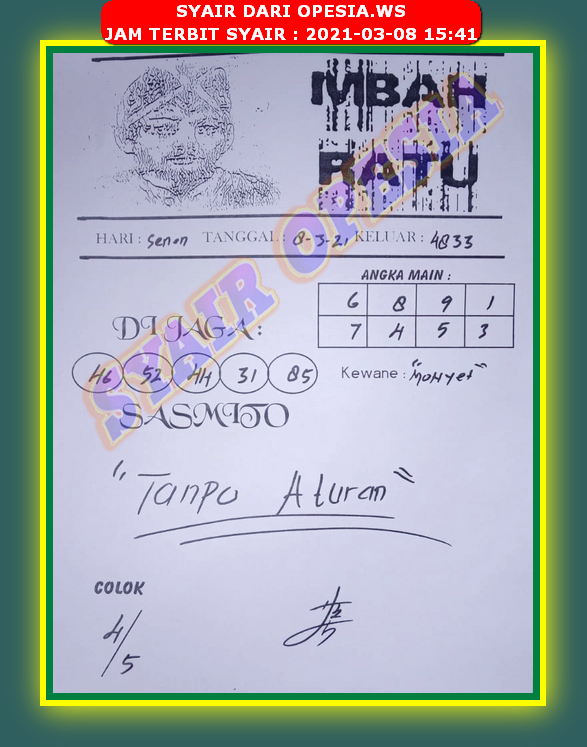 SYAIR DARI OPESIA.WS
JAM TERBIT SYAIR : 2021-03-08 15:41
MBAH
RATU
HARI : Senen TANGGAL : 8-3-21 KELUAR : 4833
SYAIR OPESIA
ANGKA MAIN :
6 8 9 1
7 4 5 3
DI JAGA :
46 52 44 31 85
Kewane : "Monyet"
SASMITO
"Tanpo Aturan"
COLOK
4/5